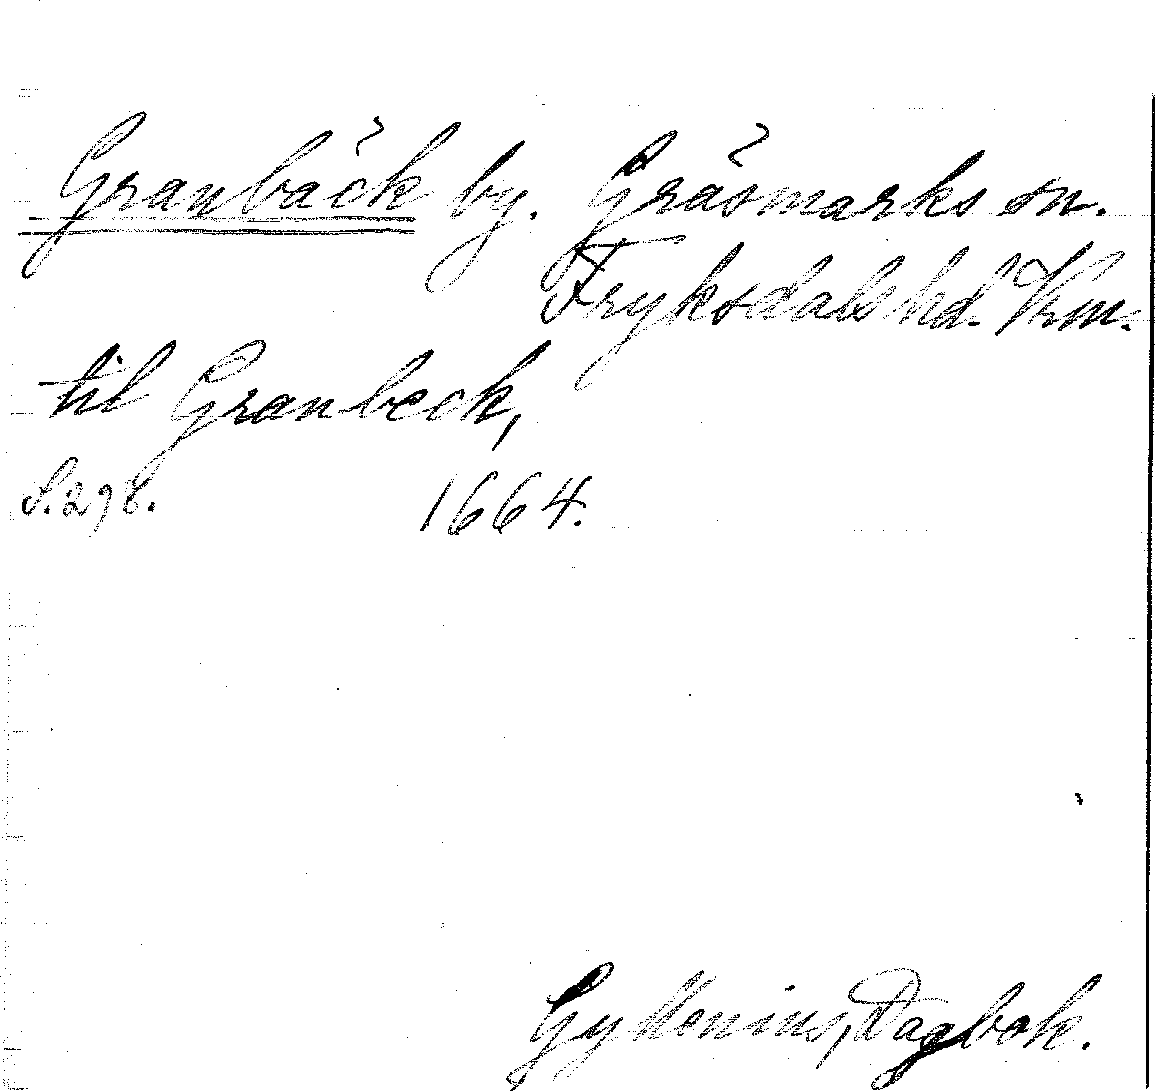 Granbäck by. Gräsmarks sn.
Fryksdals hd. Vrm.
til Granbeck,
S. 298. 1664.
Gyllenius, Dagbok.